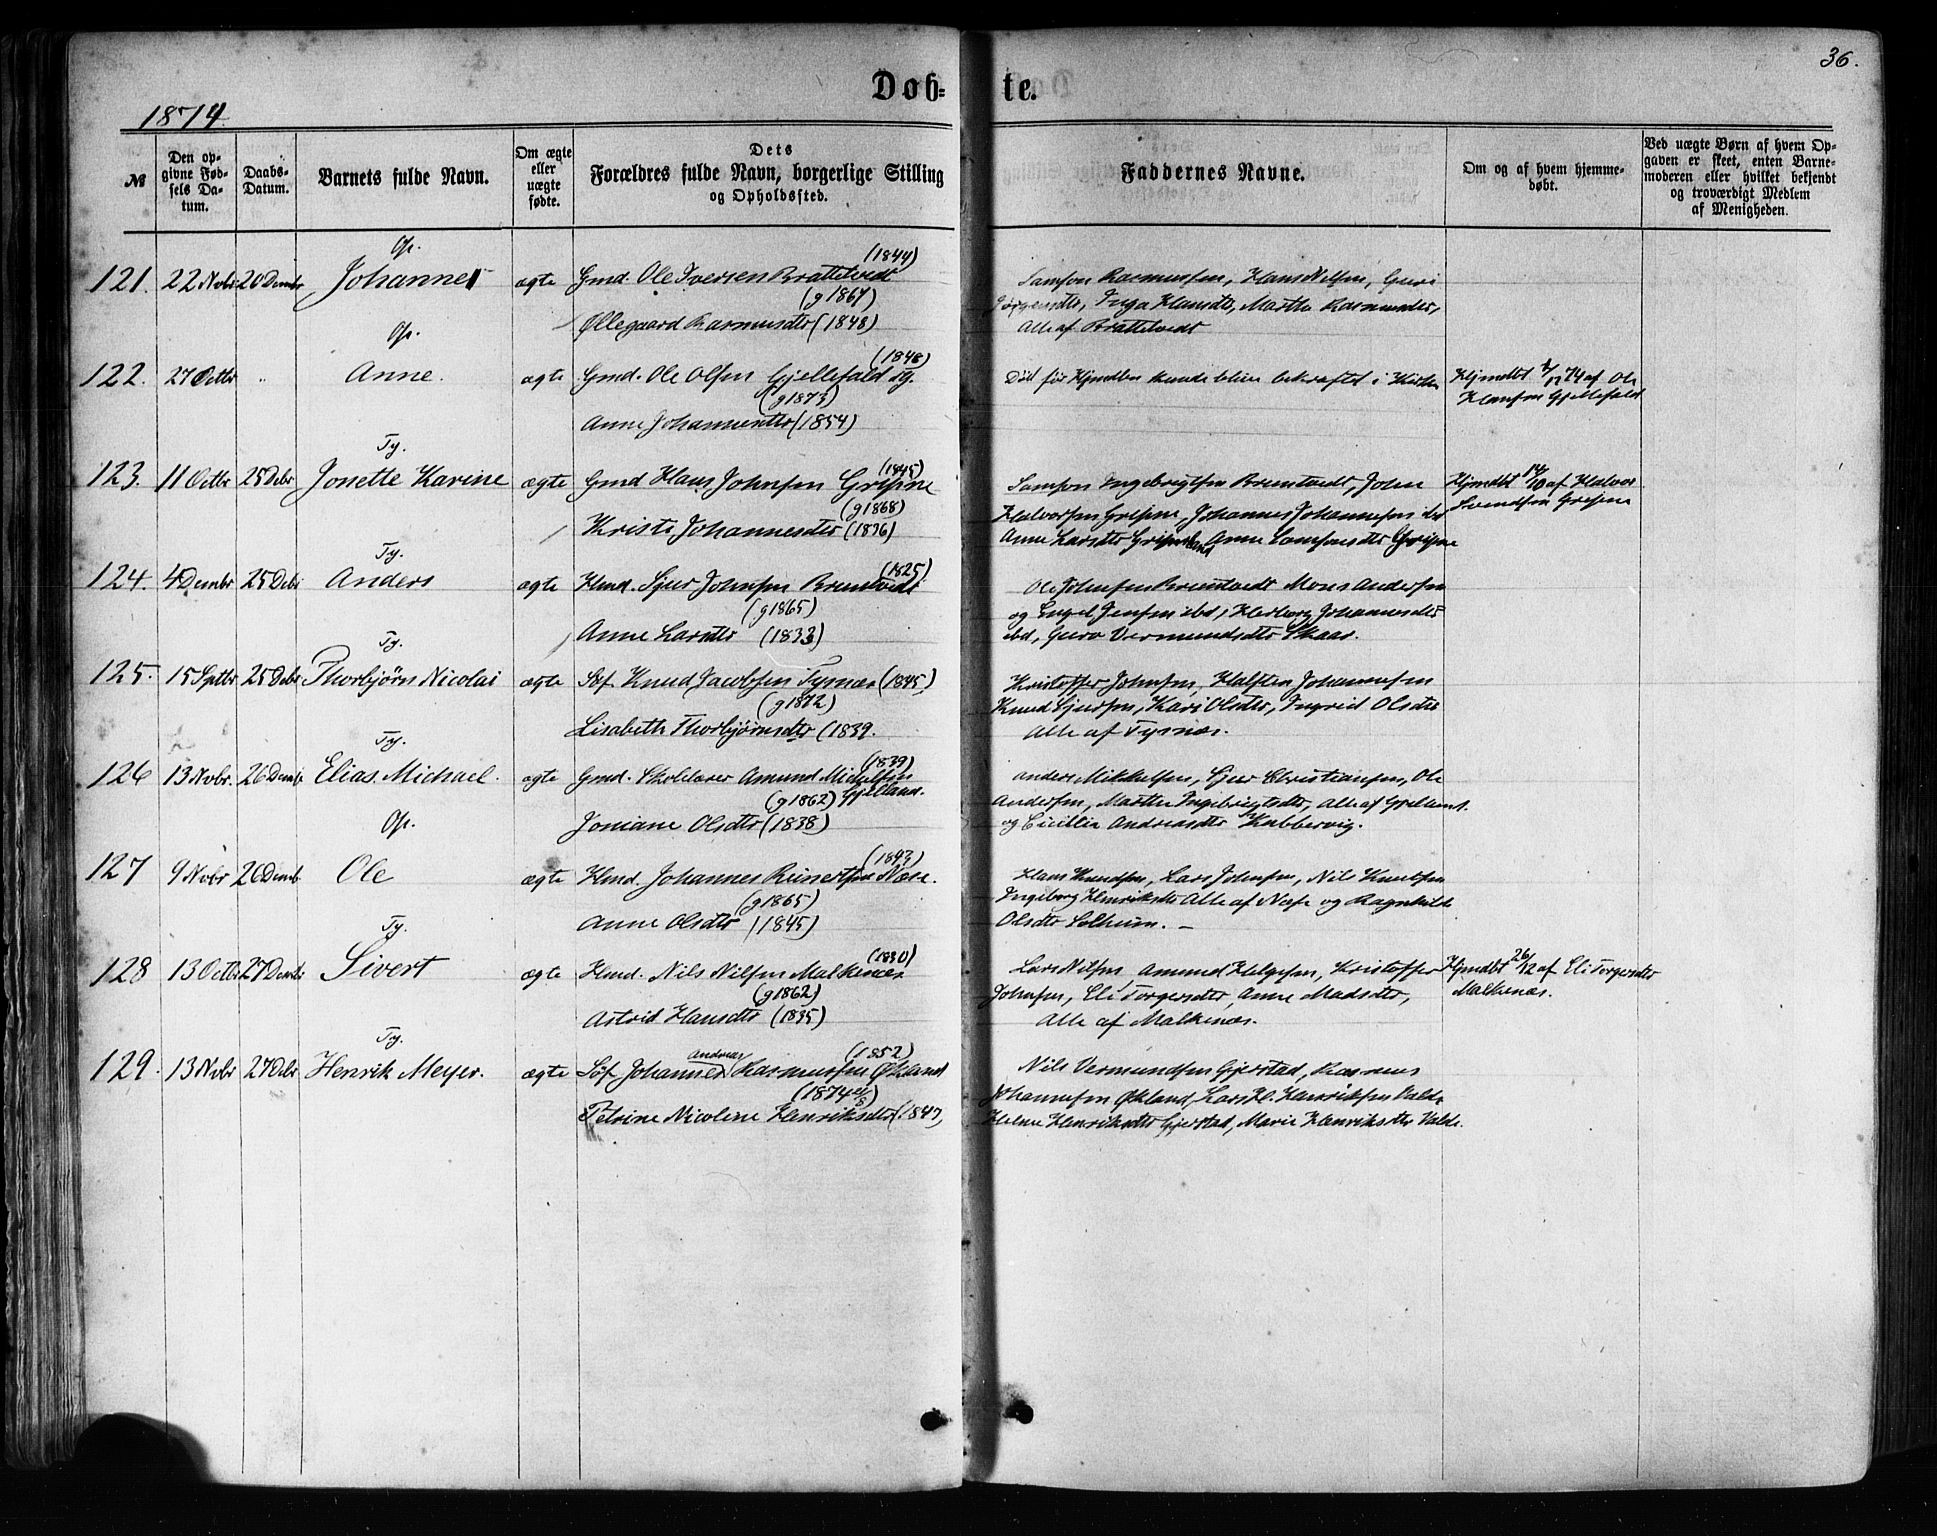 36.
Døb=te.
1874
№
Den opgivne Fødsels Datum.
Daabs-Datum.
Barnets fulde Navn.
Om ægte eller uægte fødte.
Dets Forældres fulde Navn, borgerlige Stilling og Opholdssted.
Faddernes Navne.
Om og af hvem hjemmedøbt.
Ved uægte Børn af hvem Opgaven er skeet, enten Barnemoderen eller hvilket bekjendt og troværdigt Medlem af Menigheden.
Op. (1844)
121. 22 Novbr 26 Dembr Johannes ægte Gmd. Ole Iversen Brattetvedt Samson Rasmussen, Hans Nelsen, Guri
(g 1867) Jørgensdtr, Inga Hansdtr, Martha Rasmusdtr,
Øllegaard Rasmusdtr (1848) Alle af Brattetvedt
Op. (1848)
122. 27 Octbr " Anne. ægte Gmd. Ole Olsen Gjellefald Ty. Død før Hjmdben kunde blive bekræftet i Kirken Hjmdbt 74 af Ole
(g 1873) Hansen Gjellefald
Anne Johannesdtr (1854)
Ty. (1845)
123. 11 Octbr 25 Debr Jonette Karine ægte Gmd Hans Johnsen Gripne Samson Ingebrigtsen Brentvedt, John Hjmdbt af Halvor
(g 1868) Halvorsen Gripne, Johannes Johannesen ibd Svendsen Gripne
Kristi Johannesdtr (1836) Anne Larsdtr Anne Samsonsdtr Gripne
Ty. (1825)
124. 4 Dembr 25 Debr Anders ægte Hmd. Sjur Johnsen Brentvedt Ole Johnsen Brentvedt Mons Andersen
(g 1865) og Engel Jensen ibd, Herborg Johannesdtr
Anne Larsdtr (1833) ibd, Guro Vermundsdtr Skaar.
Ty.
125. 15 Septbr 25 Debr Thorbjørn Nicolai ægte Søf Knud Jacobsen Tysnæs (1845) Kristoffer Johnsen, Halsten Johannesen
(g 1872) Knud Sjursen, Kari Olsdtr, Ingrid Olsdtr
Lisabeth Thorbjørnsdtr (1839. Alle af Tysnæs.
Ty. (1839)
126 13 Novbr. 26 Dembr Elias Michael. ægte Gmd. Skolelærer Amund Mickelsen Anders Mikkelsen, Sjur Christiansen, Ole
(g 1862) Gjelland. Andersen, Marthe Ingebrigtsdtr, Alle af Gjelland.
Joniane Olsdtr (1838) og Cicillia Andreasdtr Kubbervig.
Op. (1843)
127 9 Novbr 26 Dembr Ole ægte Hmd. Johannes Reinertsen Næse. Hans Knudsen, Lars Johnsen, Nils Knudsen
(g 1865) Ingeborg Henriksdtr Alle af Nese og Ragnhilde
Anne Olsdtr (1845) Olsdtr Solheim. —
Ty. (1830)
128 13 Octbr 27 Dembr Sivert ægte Hmd. Nils Nilsen Malkenæs Lars Nilsen, Amund Helgesen, Kristoffer Hjmdbt 26/12 af Eli Torgersdtr
(g 1862) Johnsen, Eli Torgersdtr, Anne Madsdtr, Malkenæs.
Astrid Hansdtr (1835) Alle af Malkenæs.
Ty. (1852)
129. 13 Novbr 27 Debr Henrik Meyer. ægte Søf Johannes Andreas Rasmussen Økland Nils Vermundsen Gjerstad, Rasmus
(1874) Johannesen Økland, Lars H. Henriksen Valde
Petrine Nicoline Henriksdtr (1847) Helene Henriksdtr Gjerstad, Marie Henriksdtr Valde.